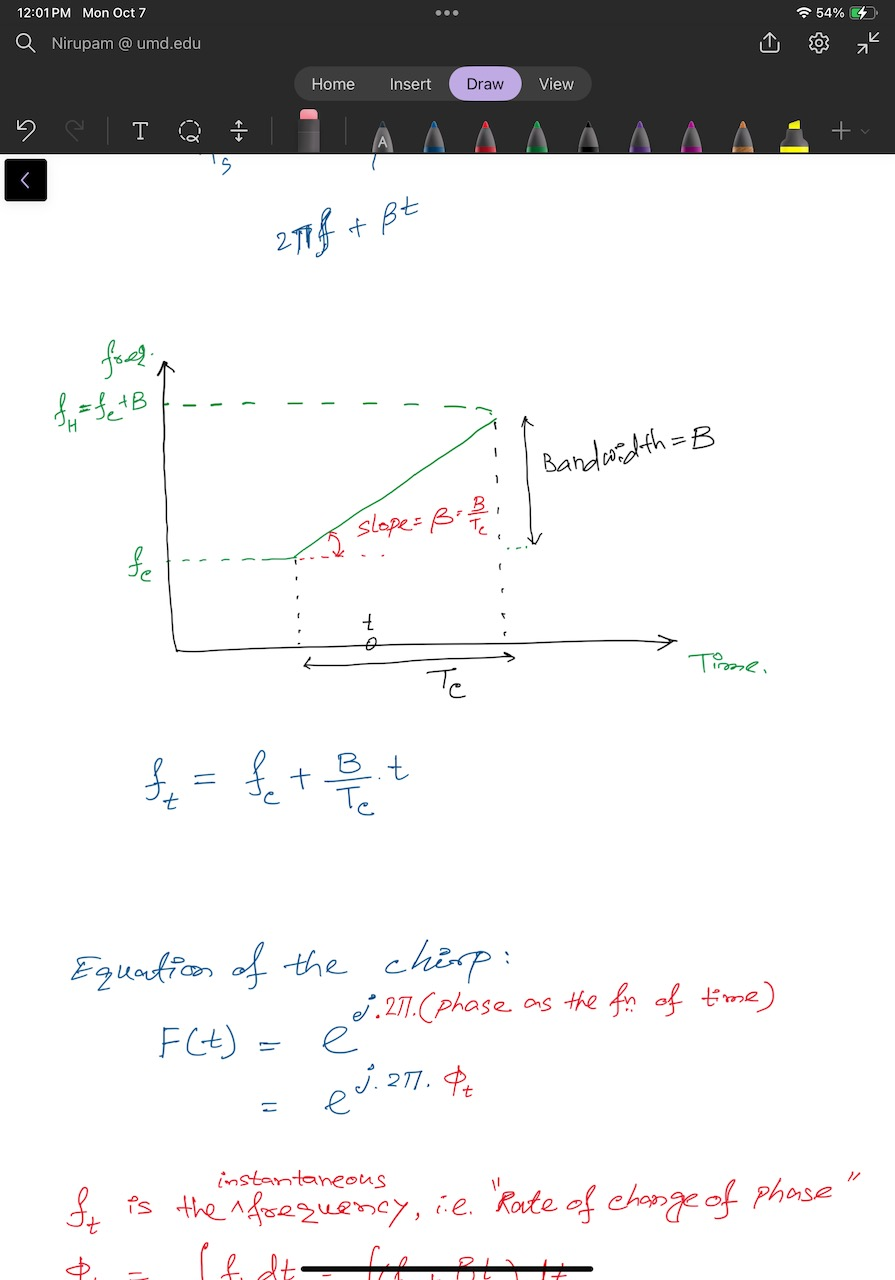 12:01 PM Mon Oct 7
54%
Nirupam @ umd.edu
Home Insert Draw View
T
A
2πf + βt
freq.
f_H = f_c + B
Bandwidth = B
slope = β = B/T_c
f_c
t
Time.
T_c
f_t = f_c + B/T_c . t
Equation of the chirp:
F(t) = e^{j.2π.(phase as the fn. of time)}
= e^{j.2π. Φ_t}
instantaneous
f_t is the ^ frequency, i.e. "Rate of change of phase"